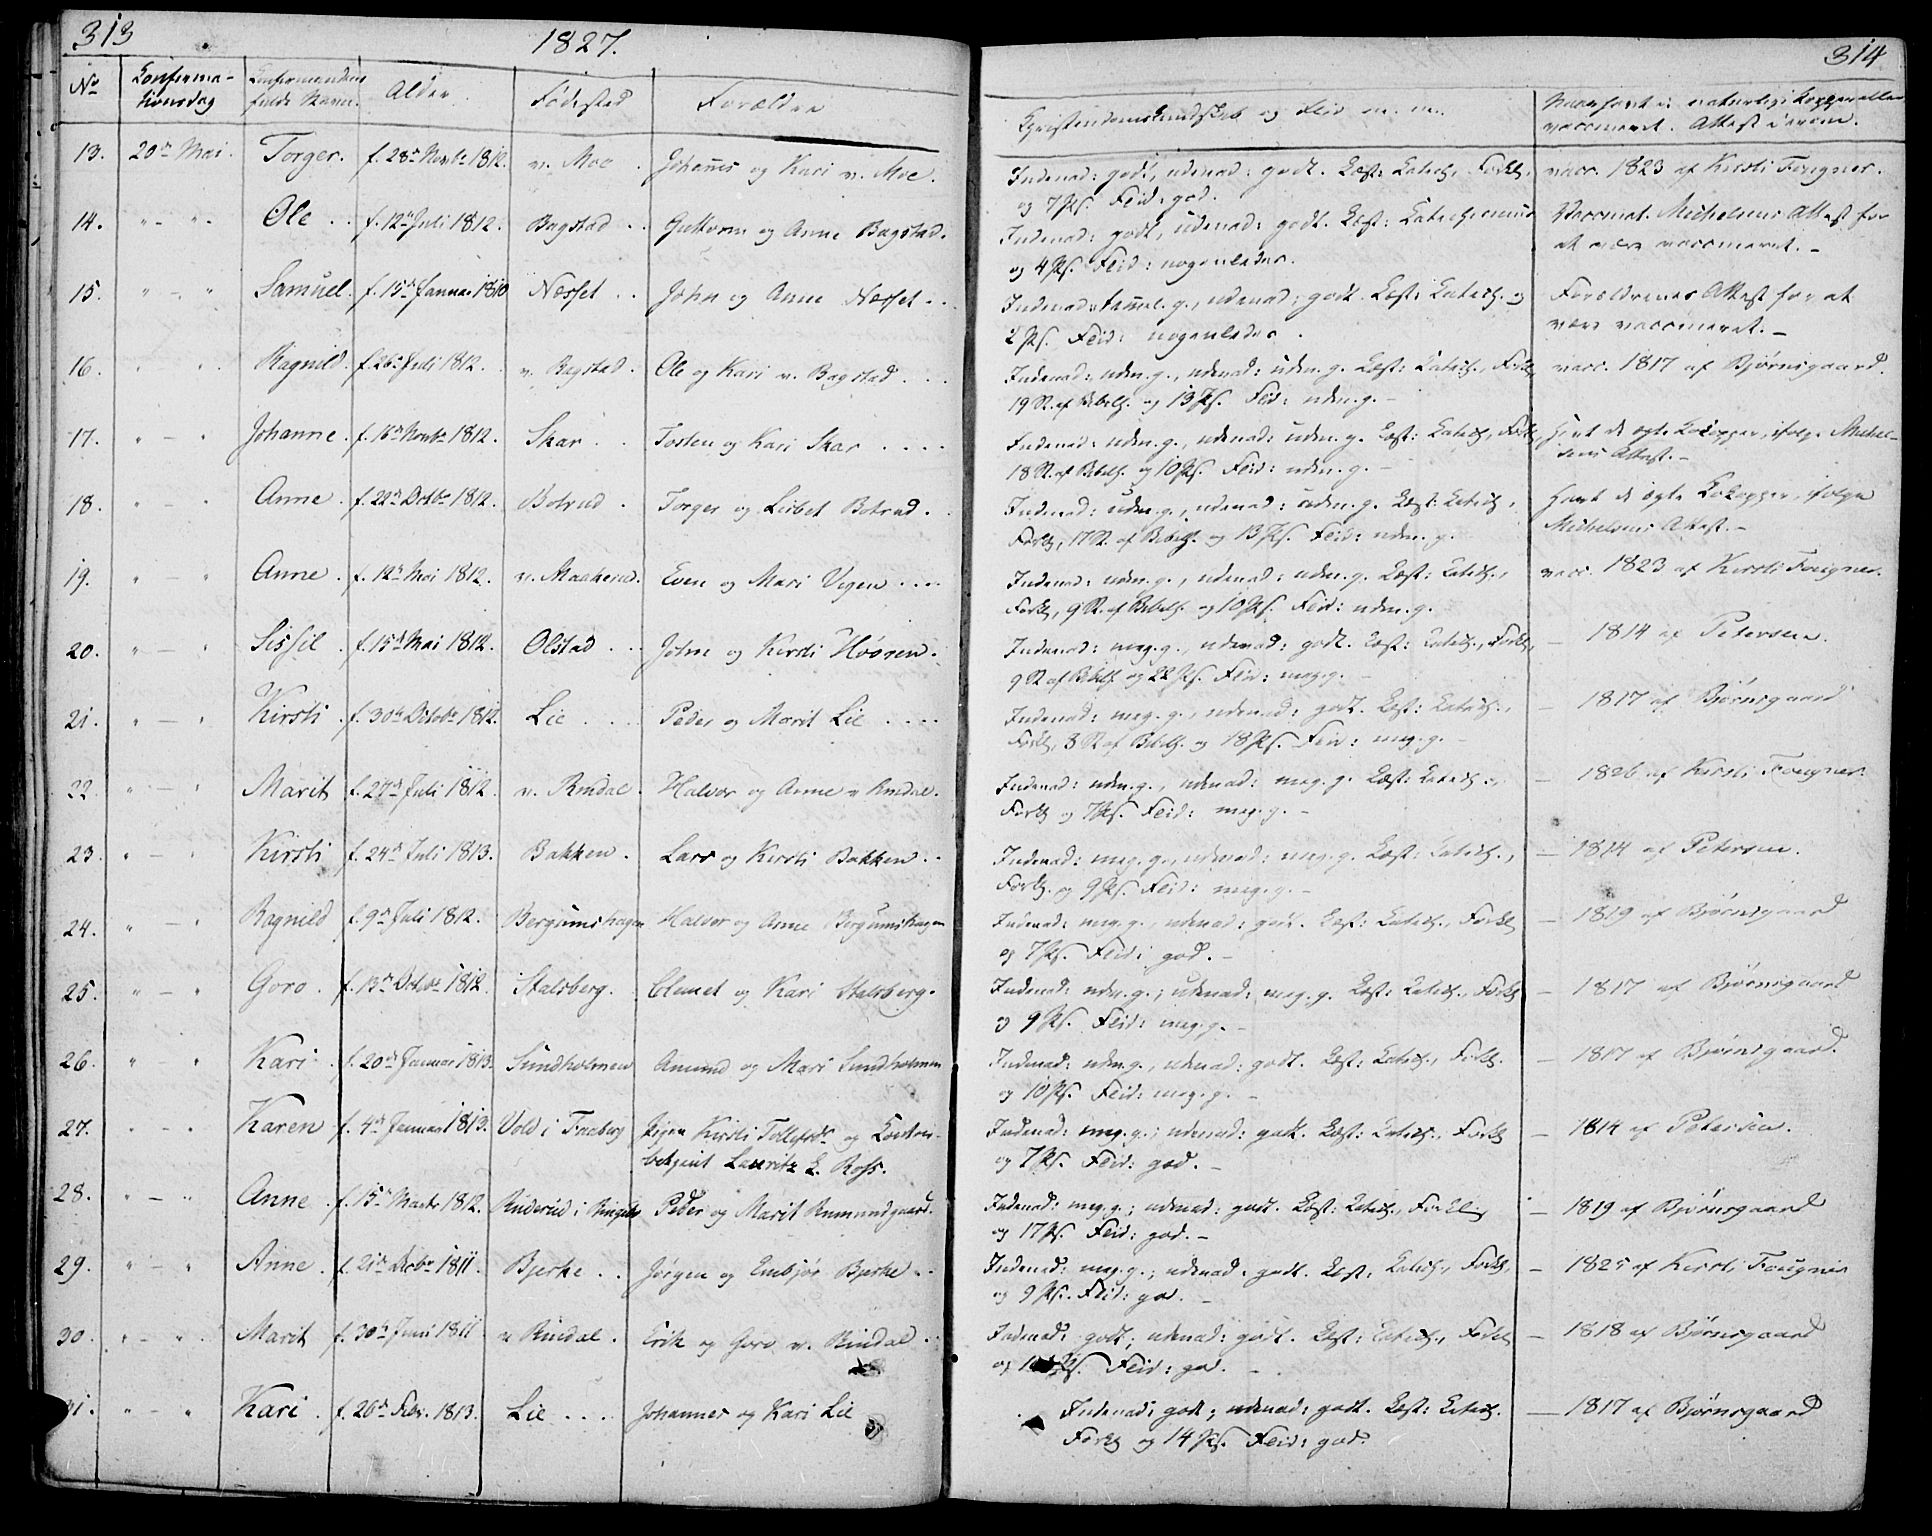 313
1827.
No
Konfirma-
tionsdag
Konfirmandens
fulde Navn.
Alder.
Fødested
Forældre
13. 20de Mai. Torger. f. 28de Novbr 1812. n. Moe. Johannes og Kari n. Moe.
14. " - " - Ole . . f. 12te Juli 1812. Bagstad . . Guttorm og Anne Bagstad.
15. " - " Samuel. f. 15de Januar 1810 Næsset . . John og Anne Næsset . .
16. " " Ragnild. f. 26de Juli 1812. n. Bagstad. Ole og Kari n. Bagstad . . .
17. " - " Johanne. f. 16de Novbr 1812. Skar . . Torsten og Kari Skar . . . .
18. " - " Anne. f. 22de Octbr 1812. Botrud . Torger og Lisbet Botrud . .
19. " - " Anne. f. 12te Mai 1812. n. Maehend. Even og Mari Vegen . . . .
20. " - " Sissil . f. 15de Mai 1812. Olstad . . John og Kirsti Høoren .
21. " - " Kirsti . f. 30te Octobr 1812. Lie . . . Peder og Marit Lie . . . .
22. " - " Marit f. 27de Juli 1812. n. Rindal . Halvor og Anne n Rindal.
23. " - " Kirsti f. 24de Juli 1813. Bakken . Lars og Kirsti Bakken . .
24. " - " Ragnild f. 9de Juli 1812. Bergumshagen Halvor og Anne Bergumshagen
25. " - " Goro . f. 13de Octobr 1812. Stalsberg. Clemet og Kari Stalsberg.
26. " " Kari . f. 20de Januar 1813. Sundholmen Amund og Mari Sundholmen
27. " - " Karen f. 4de Januar 1813. Vold i Faaberg Pigen Kirsti Tollefsdr og
Lauritz L. Ross.
28. " - " Anne . f. 15de Marts 1812. Ruderud i Ringebo Peder og Marit Rumundgaard.
29. " - " Anne . f. 21de Decbr 1811. Bjerke . . Jørgen og Embjør Bjerke . .
30. " - " Marit f. 30te Juni 1811 n Rindal . Erik og Goro n. Rindal . .
31. " - " Kari . f. 26de Febr. 1813. Lie . . . Johannes og Kari Lie
314
Christendomskundskab og Flid m. m.
Naar havt de naturlige Kopper eller
vaccineret. Attest derom.
Indenad: godt, udenad: godt. Læst: Catech., Forkl. vacc. 1823 af Kirsti Fougner.
og 7 Ps. Flid: god.
Indenad: godt, udenad: godt. Læst: Catechismus Vaccinat. Michelsens Attest for
og 4 Ps. Flid: nogenledes. at være vaccineret. -
Indenad: temmel. g., udenad: godt. Læst: Catech. og Forældrenes Attest for at
2 Ps. Flid: nogenledes. være vaccineret. -
Indenad: udm. g., udenad: udm. g. Læst: Catech., Forkl, vacc. 1817 af Bjørnsgaard.
19 St. af Bibelh. og 13 Ps. Flid: udm. g. -
Indenad: udm. g., udenad: udm. g. Læst: Catech., Forkl, Havt de ægte Kokopper, ifølge Michel-
18 St. af Bibelh. og 10 Ps. Flid: udm. g. - sens Attest. -
Indenad: udm. g., udenad: udm. g. Læst: Catech., Havt de ægte Kokopper, ifølge
Forkl, 17 St. af Bibelh. og 13 Ps. Flid: udm. g. Michelsens Attest. -
Indenad: udm. g., udenad: udm. g. Læst: Catech., vacc. 1823 af Kirsti Fougner.
Forkl, 9 St. af Bibelh. og 10 Ps. Flid: udm. g.
Indenad: meg. g., udenad: godt. Læst: Catech., Forkl, — 1814 af Petersen.
9 St af Bibelh og 22 Ps. Flid: meg. g. -
Indenad: meg. g., udenad: godt. Læst: Catech., — 1817 af Bjørnsgaard
Forkl, 3 St af Bibelh. og 18 Ps. Flid: meg. g. -
Indenad: udm. g., udenad: meg. g. Læst: Catech., — 1826 af Kirsti Fougner.
Forkl og 7 Ps. Flid: meg. g. -
Indenad: meg. g., udenad: meg. g. Læst: Catech., — 1814 af Petersen.
Forkl. og 9 Ps. Flid: meg. g. -
Indenad: meg. g., udenad: godt. Læst: Catech., Forkl — 1819 af Bjørnsgaard
og 7 Ps. Flid: god. -
Indenad: udm. g.; udenad: meg. g. Læst: Catech., Forkl — 1817 af Bjørnsgaard
og 9 Ps. Flid: meg. g. -
Indenad: udm. g., udenad: godt. Læst: Catech., Forkl. — 1817 af Bjørnsgaard.
og 10 Ps. Flid: meg. g. -
Indenad: meg. g.; udenad: godt. Læst: Catech., Forkl — 1814 af Petersen.
og 7 Ps. Flid: god. -
Indenad: meg. g.; udenad: godt. Læst: Catech., Forkl. — 1819 af Bjørnsgaard
og 17 Ps. Flid: god. -
Indenad: meg. g.; udenad: godt. Læst: Catech., Forkl, — 1825 af Kirsti Fougner
og 9 Ps. Flid: god. -
Indenad: godt; udenad: godt. Læst: Catech., Forkl — 1818 af Bjørnsgaard
og Ps. Flid: god. -
Indenad: godt; udenad: godt. Læst: Catech. — 1817 af Bjørnsgaard
Forkl og 14 Ps. Flid: god.